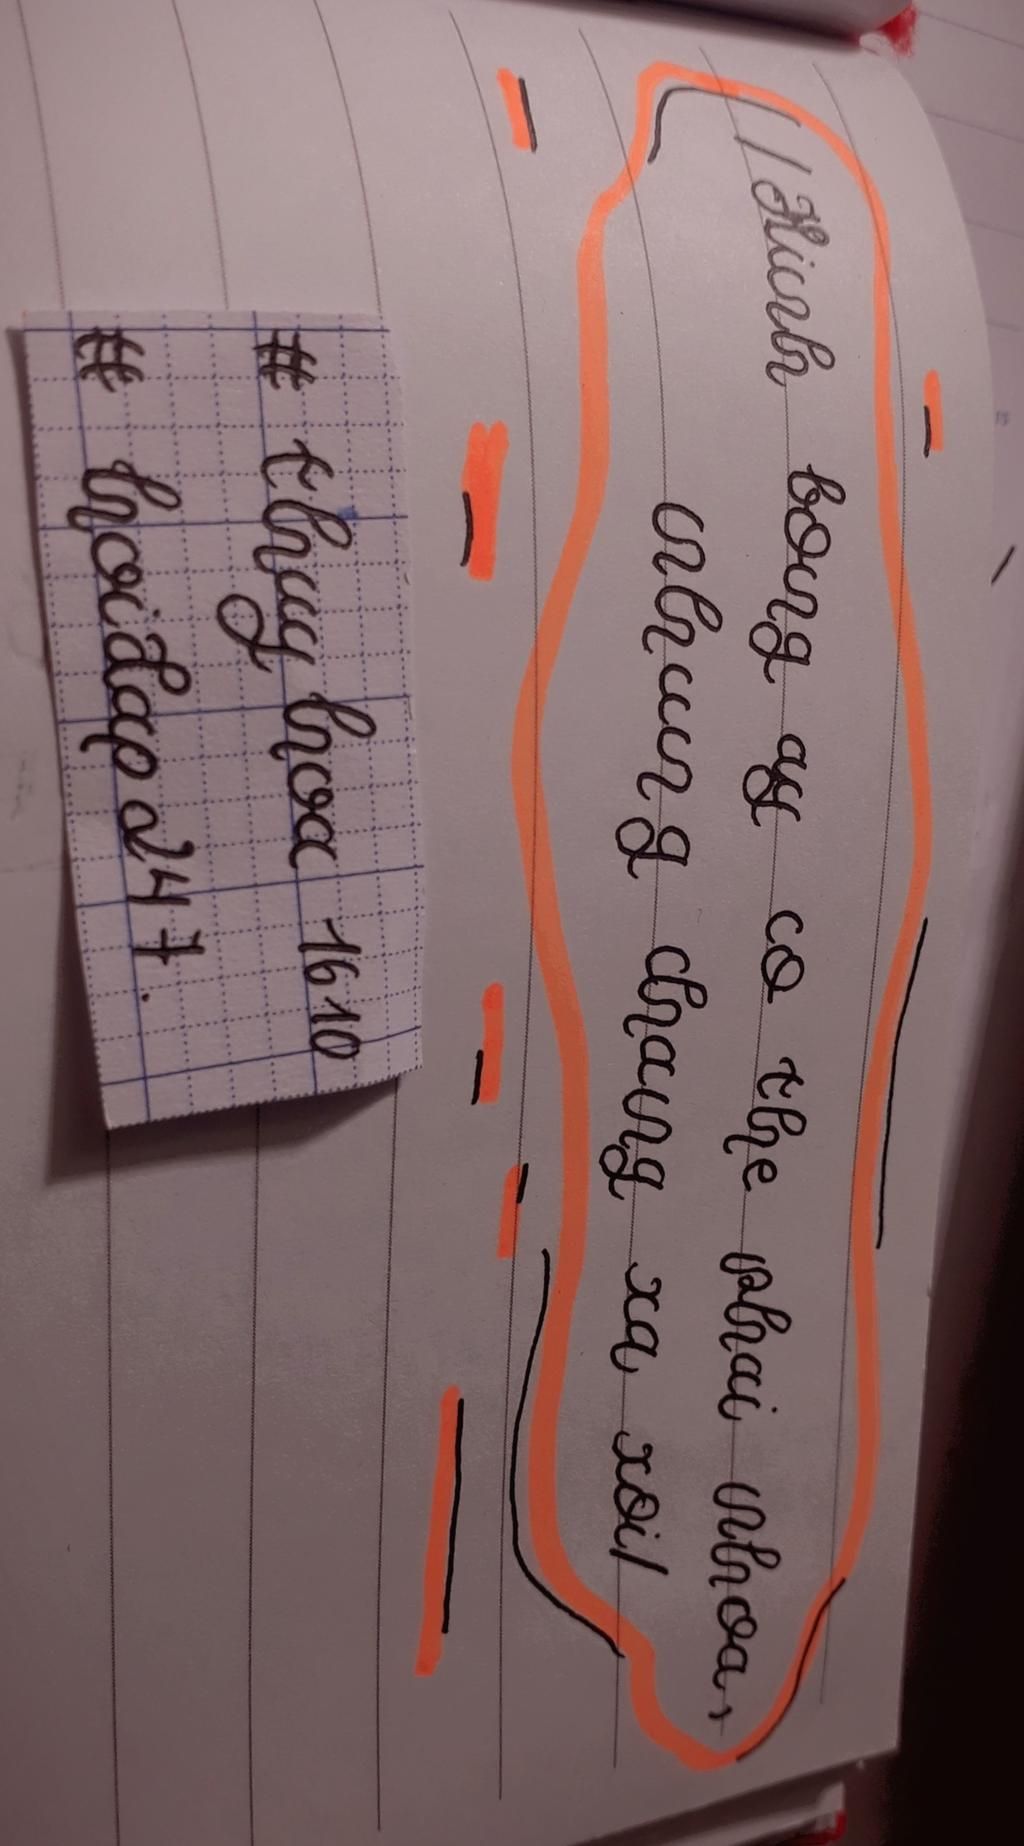 /Hinh bong ay co the phai nhoa,
nhung chang xa xoi/
# thuy hoa 1610
# hoidap247.